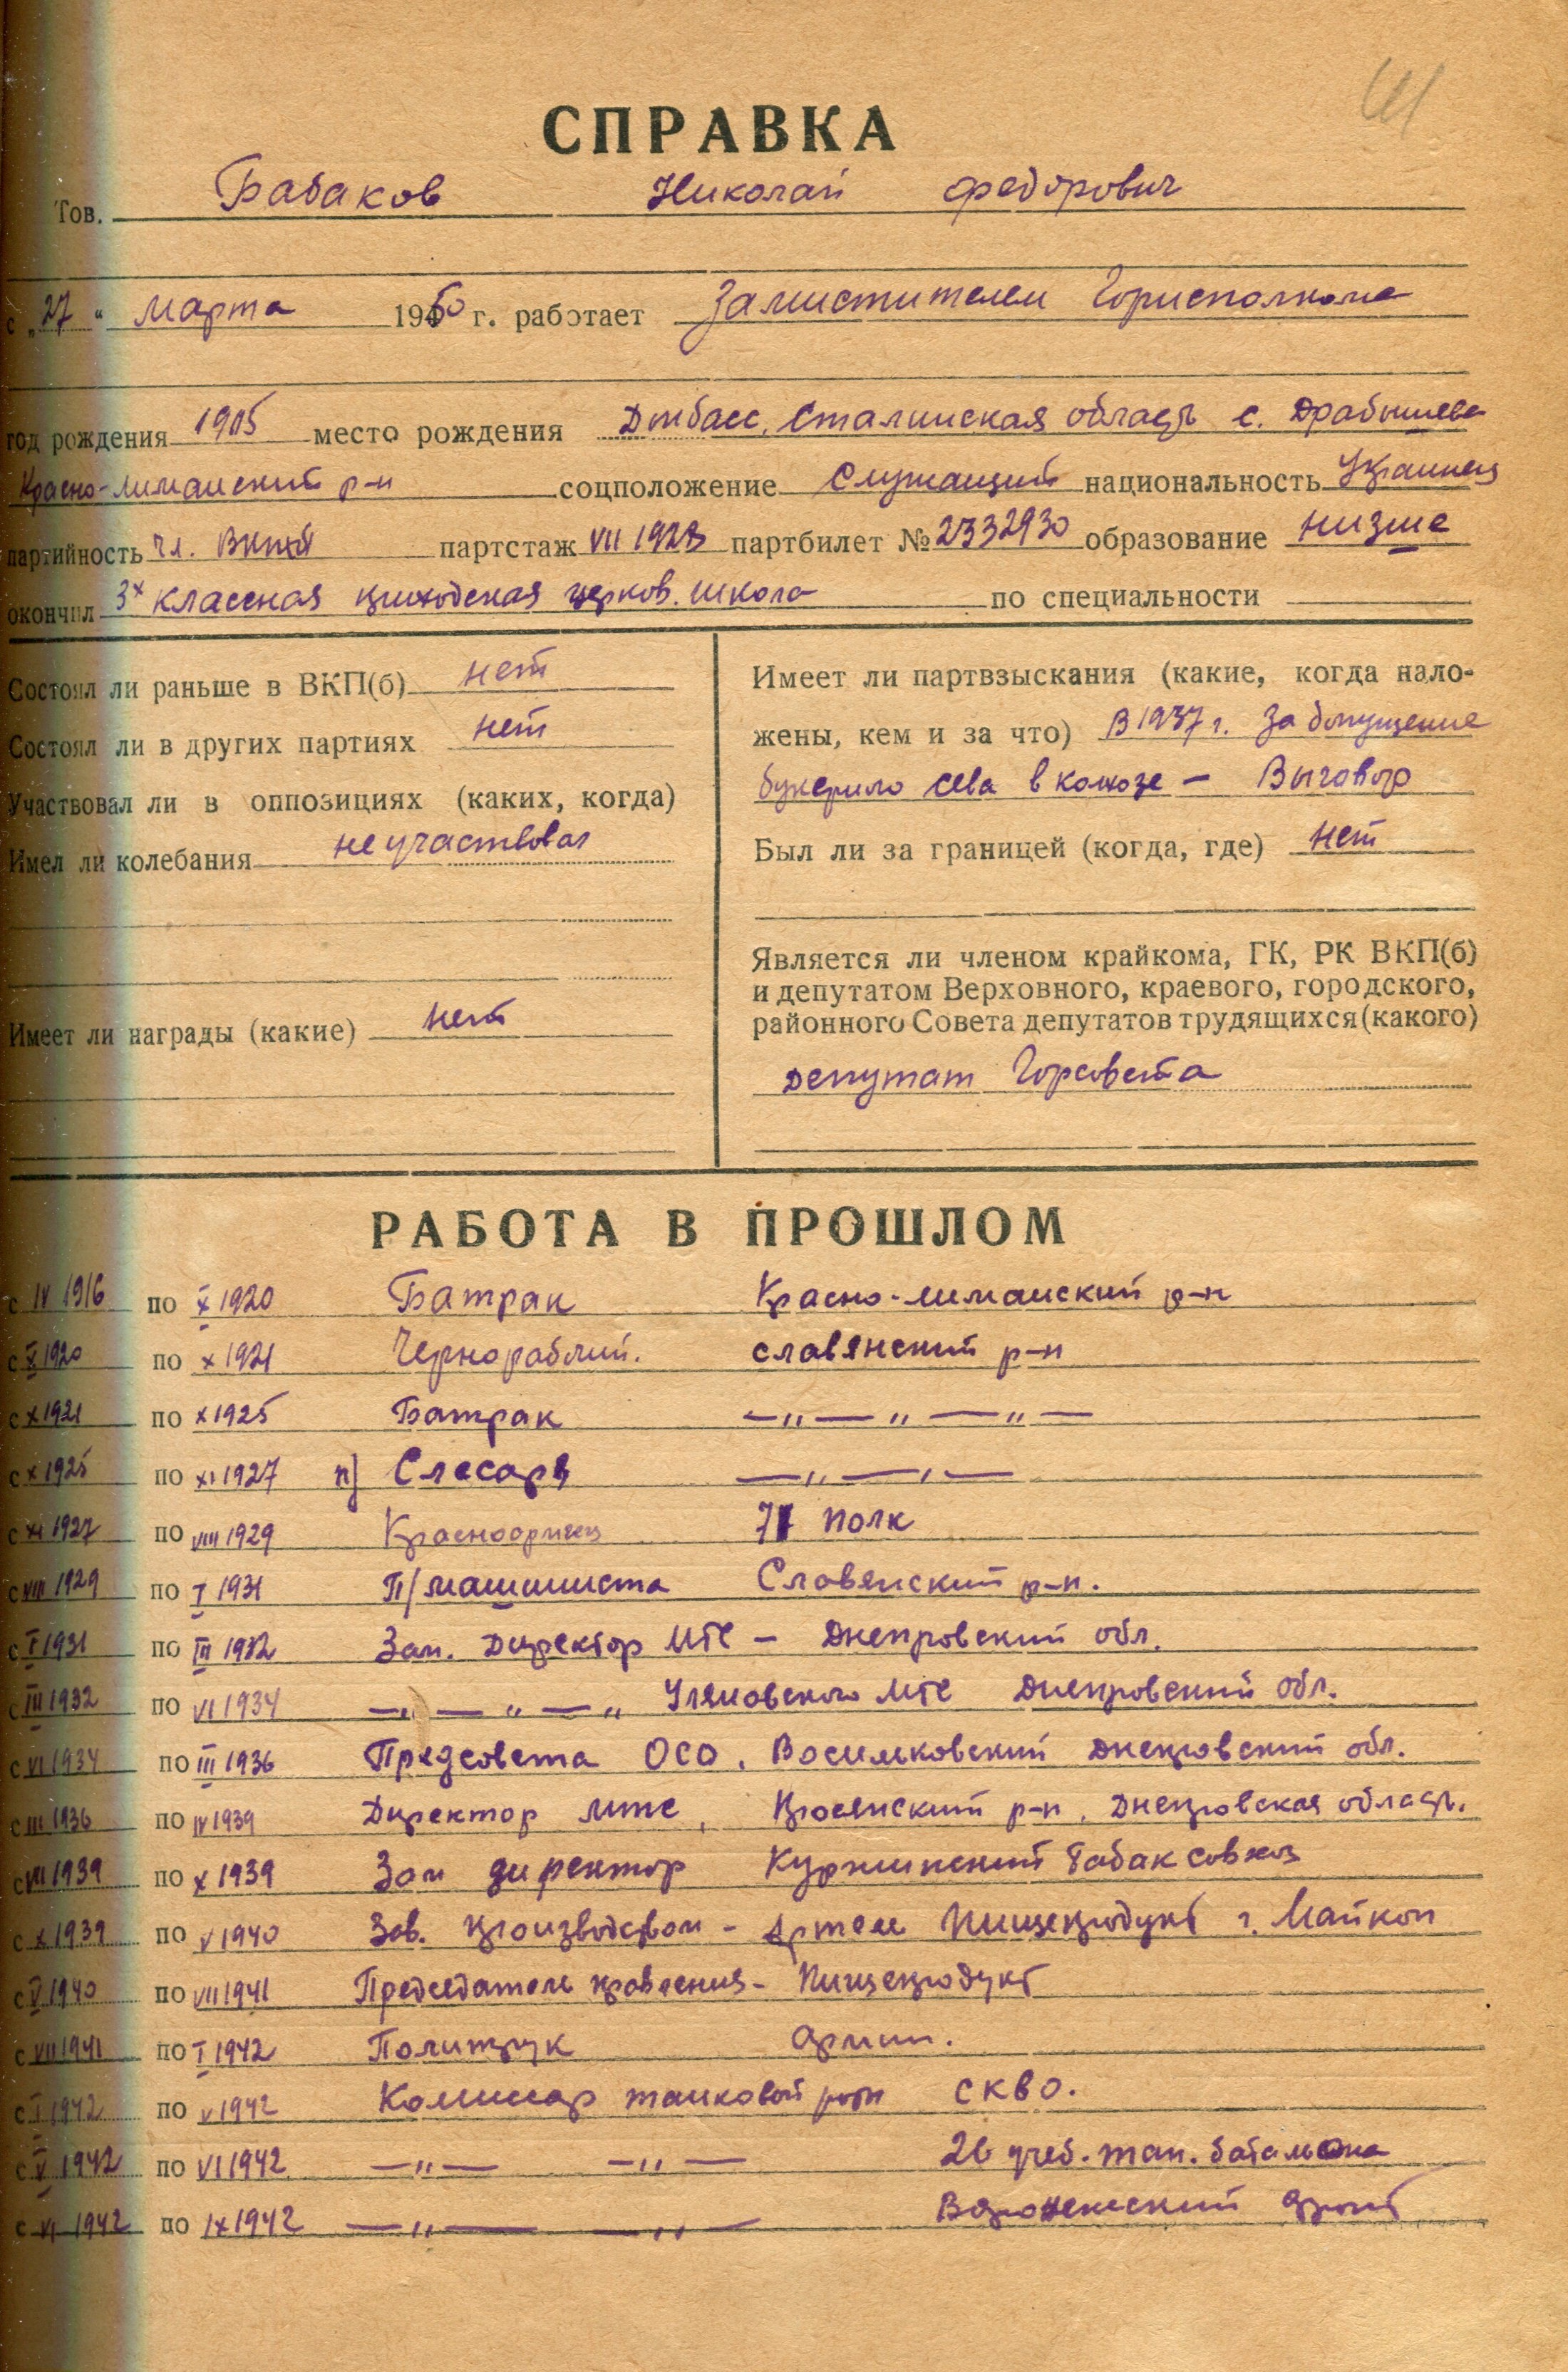 СПРАВКА
Тов. Бабаков Николай Федорович
с „27“ марта 1950 г. работает Заместителем Горисполкома
год рождения 1905 место рождения Донбасс, Сталинская область с. Дробышева
Красно-лиманский р-н соцположение Служащий национальность Украинец
партийность чл. ВКП(б) партстаж VII 1928 партбилет № 2332930 образование низше
окончил 3х классная приходская церков. школа по специальности
Состоял ли раньше в ВКП(б) нет
Состоял ли в других партиях нет
Участвовал ли в оппозициях (каких, когда)
Имел ли колебания не участвовал
Имеет ли награды (какие) нет
Имеет ли партвзыскания (какие, когда нало-
жены, кем и за что) В 1937 г. За допущение
сева в колхозе — Выговор
Был ли за границей (когда, где) нет
Является ли членом крайкома, ГК, РК ВКП(б)
и депутатом Верховного, краевого, городского,
районного Совета депутатов трудящихся (какого)
депутат Горсовета
РАБОТА В ПРОШЛОМ
с IV 1916 по X 1920 Батрак Красно-лиманский р-н
с X 1920 по X 1921 Чернорабочий. славянский р-н
с X 1921 по X 1925 Батрак —„—„—„—
с X 1925 по XI 1927 п) Слесаря —„—„—
с XI 1927 по VIII 1929 Красноармеец полк
с VIII 1929 по I 1931 П/машиниста Славянский р-н.
с I 1931 по III 1932 Зам. Директор МТС — Днепровский обл.
с III 1932 по VI 1934 —„—„—„ Уляновского МТС Днепровский обл.
с VI 1934 по III 1936 Предсовета ОСО, Восильковский Днепровский обл.
с III 1936 по IV 1939 Директор мтс, р-н, Днепровская область.
с VII 1939 по X 1939 Зам директор Куржипский Табаксовхоз
с X 1939 по V 1940 Зав. производством — Артели Пищепродукт г. Майкоп
с V 1940 по VII 1941 Председатель правления — Пищепродукт
с VII 1941 по I 1942 Политрук Армии.
с I 1942 по V 1942 Комиссар танковой роты СКВО.
с V 1942 по VI 1942 —„— —„— 26 учеб. тан. батальона
с VI 1942 по IX 1942 —„— —„— Воронежский фронт